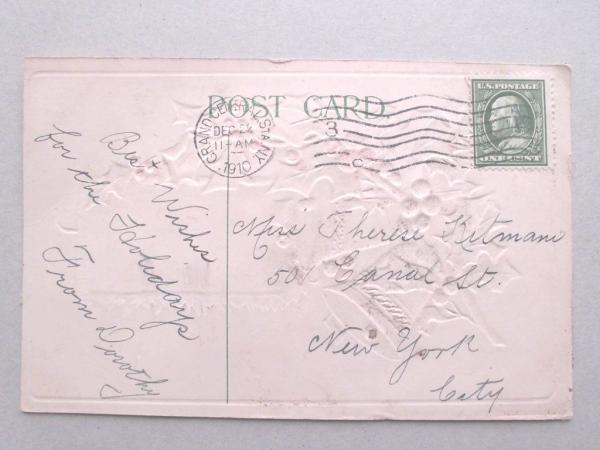 POST CARD.
GRAND CENTRAL STA. N.Y.
DEC 24
11-AM
1910
3
U.S. POSTAGE
ONE CENT
Best Wishes
for the Holidays
From Dorothy
Miss Therese Kitmani
501 Canal St.
New York
City